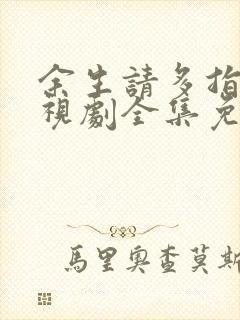 余生請多指
視劇全集免
馬里奧查莫斯